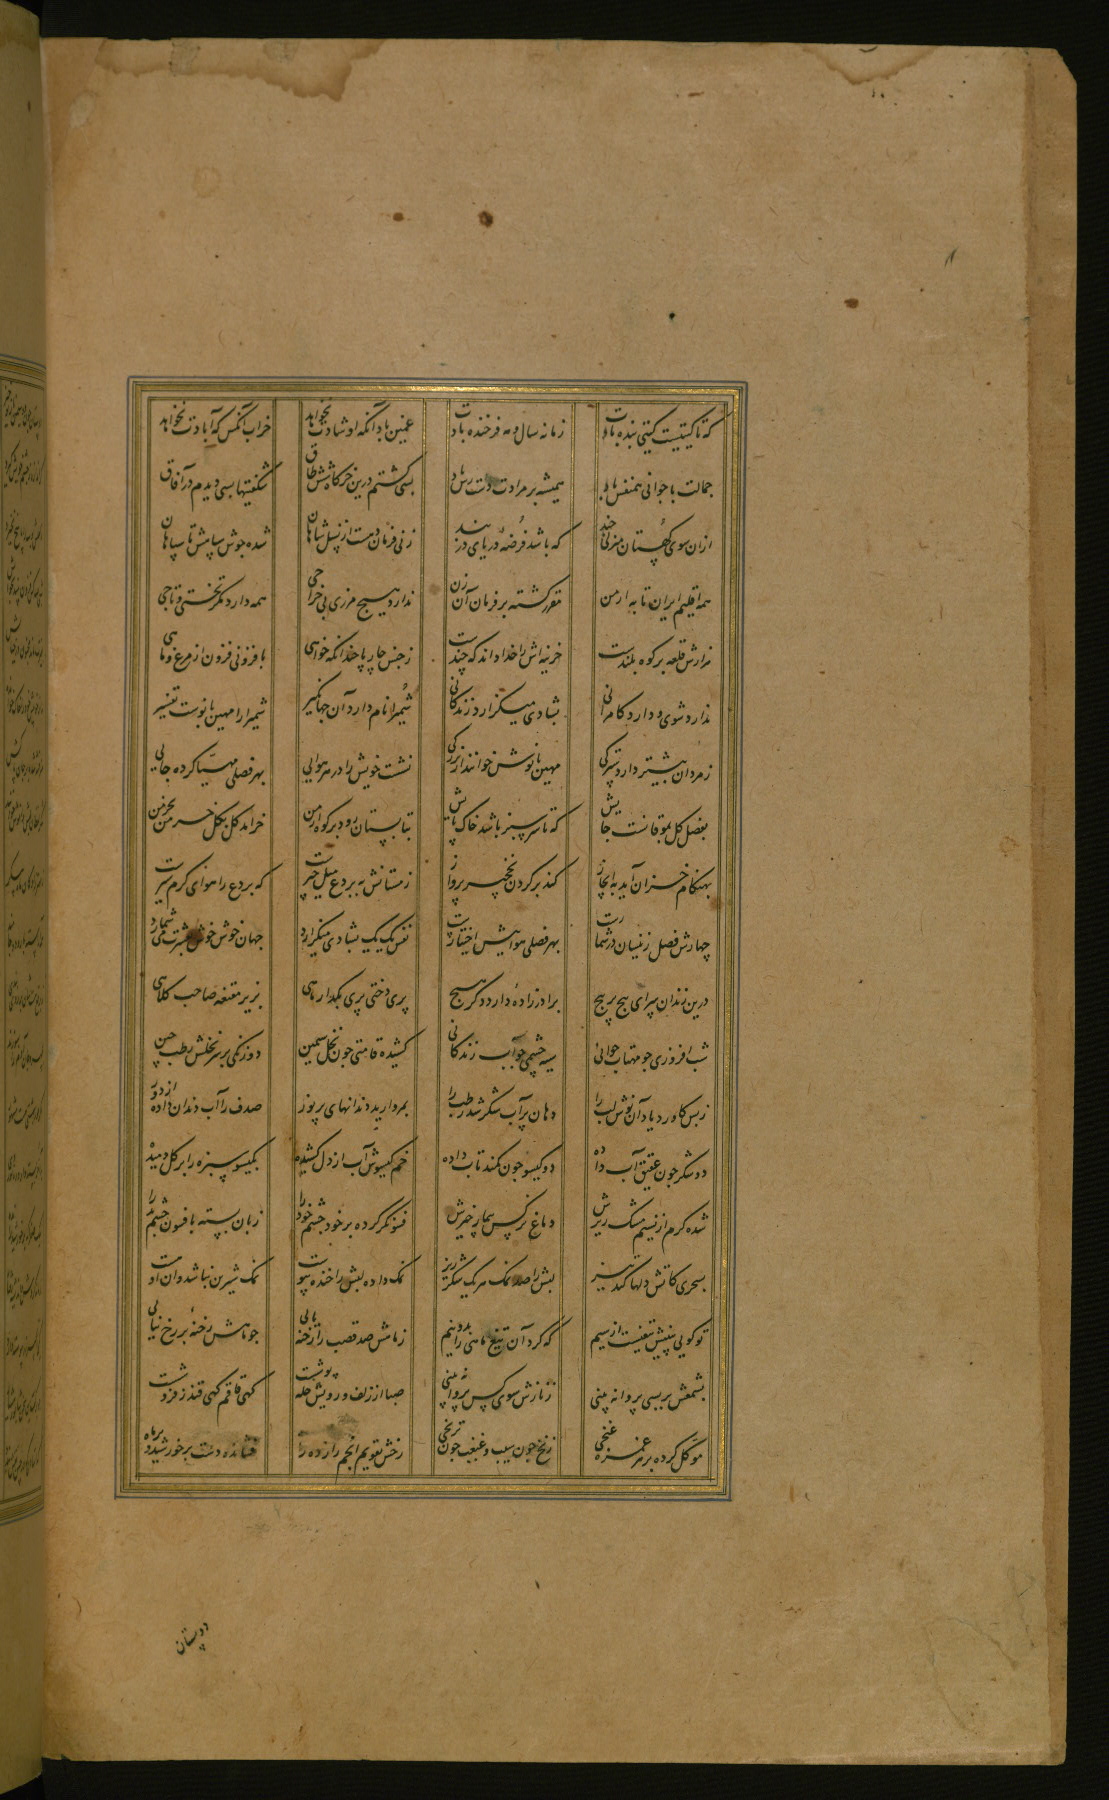 که تا گیتیست گیتی بنده بادت زمانه سال و مه فرخنده بادت غمین باد آنکه او شادت نخواهد خراب آنکس که آبادت نخواهد
جمالت با جوانی همنفس باد همیشه بر مرادت دست رس باد بسی گشتم درین خرگاه شش طاق شگفتیها بسی دیدم در آفاق
ازان سوی کهستان منزلی چند که باشد فُرضهٔ دریای دربند زنی فرمان دهست از نسل شاهان شده جوش سپاهش تا سپاهان
همه اقلیم ایران تا به ارمن مقرر گشته بر فرمان آن زن ندارد هیچ مرزی بی خراجی همه دارد مگر تختی و تاجی
هزارش قلعه بر کوه بلندست خزینه اش را خدا داند که چندست ز جنس چارپا چندانکه خواهی بافزونی فزون از مرغ و ماهی
ندارد شوی و دارد کامرانی بشادی میگذارد زندگانی شمیرا نام دارد آن جهانگیر شمیرا را مهین بانوست تفسیر
ز مردان بیشتر دارد سترگی مهین بانوش خوانند از بزرگی نشست خویش را در هر هوایی بهر فصلی مهیّا کرده جایی
بفصل گل بموقانست جایش که تا سرسبز باشد خاک پایش بتابستان رود بر کوه ارمن خرامد گل بگل خرمن بخرمن
بهنگام خزان آید به ابخاز کند بر گردن نخچیر پرواز زمستانش به بردع میل خیزست که بردع را هوای گرم سیرست
چهارش فصل زینسان در شمارست بهر فصلی هوایش اختیارست نفس یک یک بشادی میگذارد جهان خوش خوش بعشرت می شمارد
درین زندان سرای پیچ بر پیچ برادرزادهٔ دارد دگر هیچ پری دختی پری بگذار ماهی بزیر مقنعه صاحب کلاهی
شب افروزی چو مهتاب جوانی سیه چشمی چو آب زندگانی کشیده قامتی چون نخل سیمین دو زنگی بر سر نخلش رطب چین
ز بس کاورد یاد آن نوش لب را دهان پر آب شکر شد رطب را بمروارید دندانهای پر نور صدف را آب دندان داده از دور
دو شکر چون عقیق آب داده دو گیسو چون کمند تاب داده خم گیسوش آب از دل کشیده بگیسو سبزه را بر گل دمیده
شده گرم از نسیم مشک ریزش دماغ نرگس بیمار خیزش فسونگر کرده بر خود چشم خود را زبان بسته بافسون چشم بد را
بسحری کاتش دلها کند تیز لبش را صد نمک هر یک شکر ریز نمک داده لبش را خنده پیوست نمک شیرین نباشد وان او هست
تو گویی بینیش تیغیست از سیم که کرد آن تیغ ماهی را بدو نیم ز ماهش صد قصب را رخنه یابی چو ماهش رخنهٔ بر رخ نیابی
بشمعش بر بسی پروانه بینی ز نازش سوی کس پروا نه بینی صبا از زلف و رویش حله پوشست گهی قاقم گهی قندز فروشست
موکّل کرده بر هر غمزه غنجی زنخ چون سیب و غبغب چون ترنجی رخش تقویم انجم را زده راه فشانده دست بر خورشید و بر ماه
دو پستان